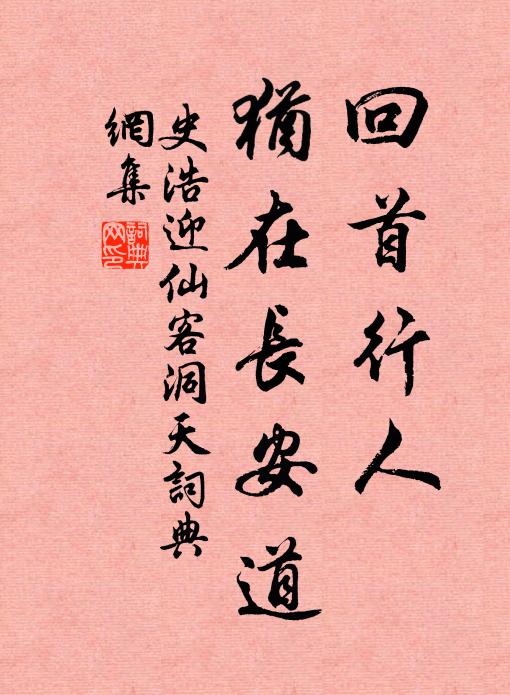 回首行人
猶在長安道
史浩迎仙客洞天詞典
網集
詞典
网印